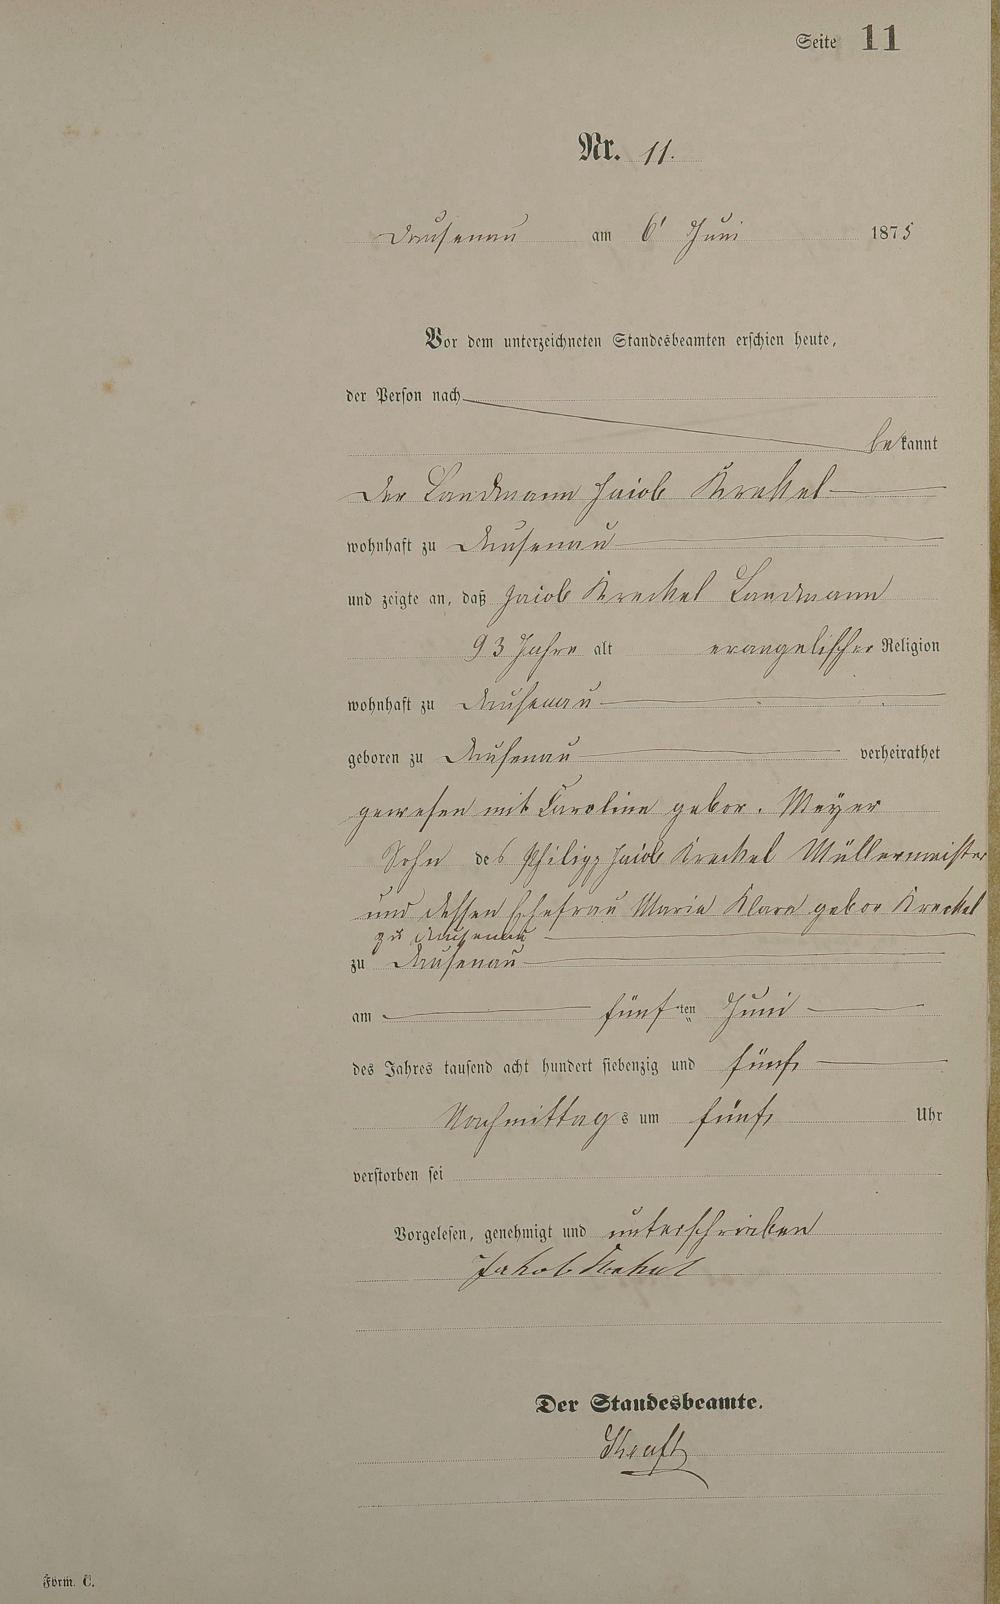 Seite 11
Nr. 11.
Dausenau am 6' Juni 1875
Vor dem unterzeichneten Standesbeamten erschien heute,
der Person nach
bekannt
der Landmann Jacob Kreckel
wohnhaft zu Dausenau
und zeigte an, daß Jacob Kreckel Landmann
93 Jahre alt evangelischer Religion
wohnhaft zu Dausenau
geboren zu Dausenau verheirathet
gewesen mit Caroline gebor. Meyer
Sohn des Philipp Jacob Kreckel Müllermeister
und dessen Ehefrau Maria Klara gebor Kreckel
zu Dausenau
zu Dausenau
am fünften Juni
des Jahres tausend acht hundert siebenzig und fünf
Nachmittags um fünf Uhr
verstorben sei
Vorgelesen, genehmigt und unterschrieben
Jakob Krekel
Der Standesbeamte.
Form. C.